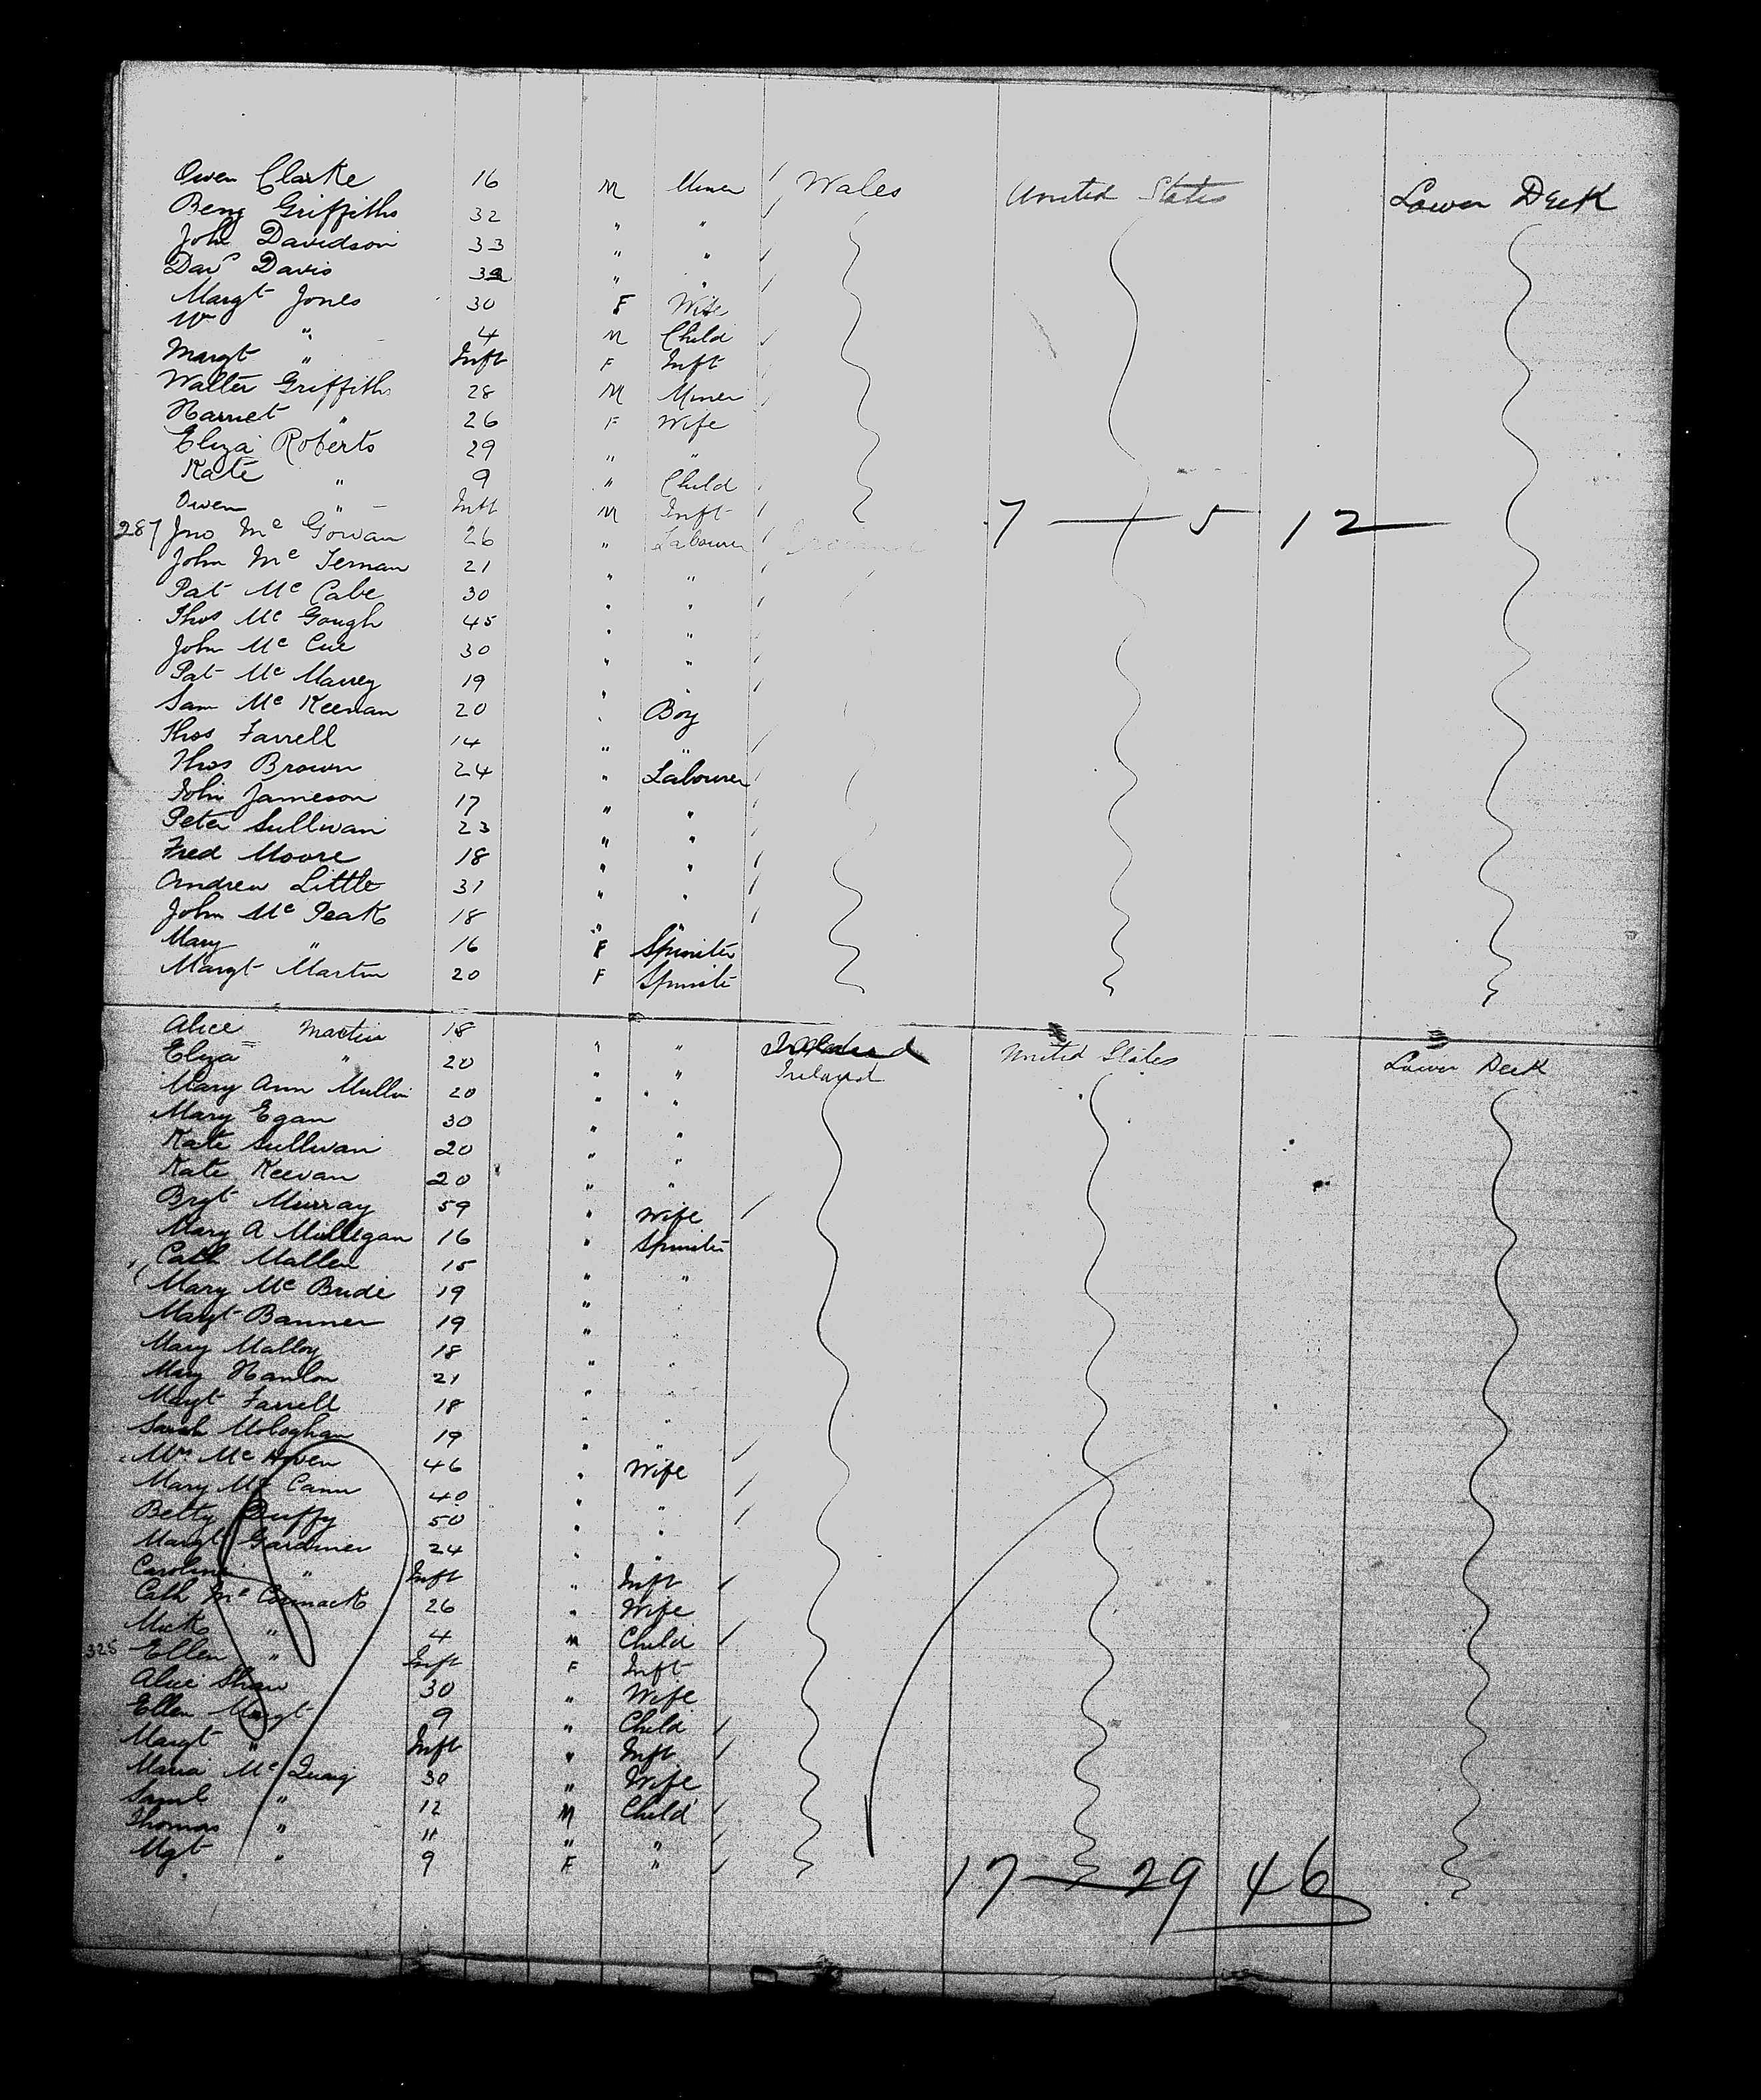 Owen Clarke 16 M Miner Wales United States Lower Deck
Benj Griffiths 32 " "
John Davidson 33 " "
Davd Davis 32 " "
Margt Jones 30 F Wife
Wm " 4 M Child
Margt " Inft F Inft
Walter Griffiths 28 M Miner
Harriet " 26 F Wife
Eliza Roberts 29 " "
Kate " 9 " Child
Owen " Inft M Inft 7 — 5 12
287 Jno Mc Gowan 26 " Labourer Ireland
John Mc Ternan 21 " "
Pat Mc Cabe 30 " "
Thos Mc Gough 45 " "
John Mc Cue 30 " "
Pat Mc 19 " "
Sam Mc Keenan 20 " Boy
Thos Farrell 14 " "
Thos Brown 24 " Labourer
John Jameson 17 " "
Peter Sullivan 23 " "
Fred Moore 18 " "
Andrew Little 31 " "
John Mc Peak 18 " "
Mary " 16 F Spinster
Margt Martin 20 F Spinste
Alice Martin 18 " " Ireland United States Lower Deck
Eliza " 20 " " Ireland
Mary Ann Mullin 20 " "
Mary Egan 30 " "
Kate Sullivan 20 " "
Kate Keevan 20 " "
Brgt Murray 59 " Wife
Mary A Mulligan 16 " Spinster
Cath Mallen 15 " "
Mary Mc Bride 19 " "
Margt Banner 19 " "
Mary Malloy 18 " "
Mary Hanlon 21 " "
Margt Farrell 18 " "
Sarah Mologhan 19 " "
Mc 46 " Wife
Mary Mc Cann 40 " "
Betty Duffy 50 " "
Margt Gardiner 24 " "
Caroline " Inft " Inft
Cath Mc Cormack 26 " Wife
Mick " 4 M Child
325 Ellen " Inft F Inft
Alice Shaw 30 " Wife
Ellen Margt 9 " Child
Margt " Inft " Inft
Maria Mc Quaig 30 " Wife
Saml " 12 M Child
Thomas " 11 " "
Mgt " 9 F "
17 — 29 46